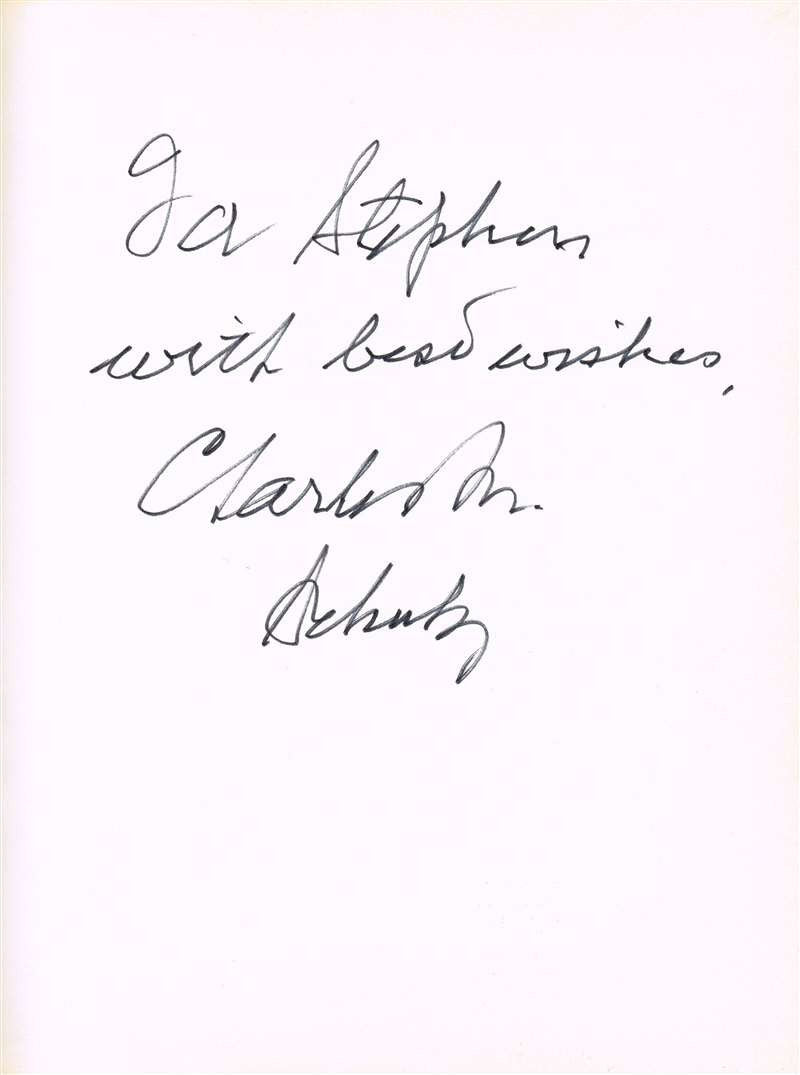 To Stephen
with best wishes,
Charles M.
Schulz